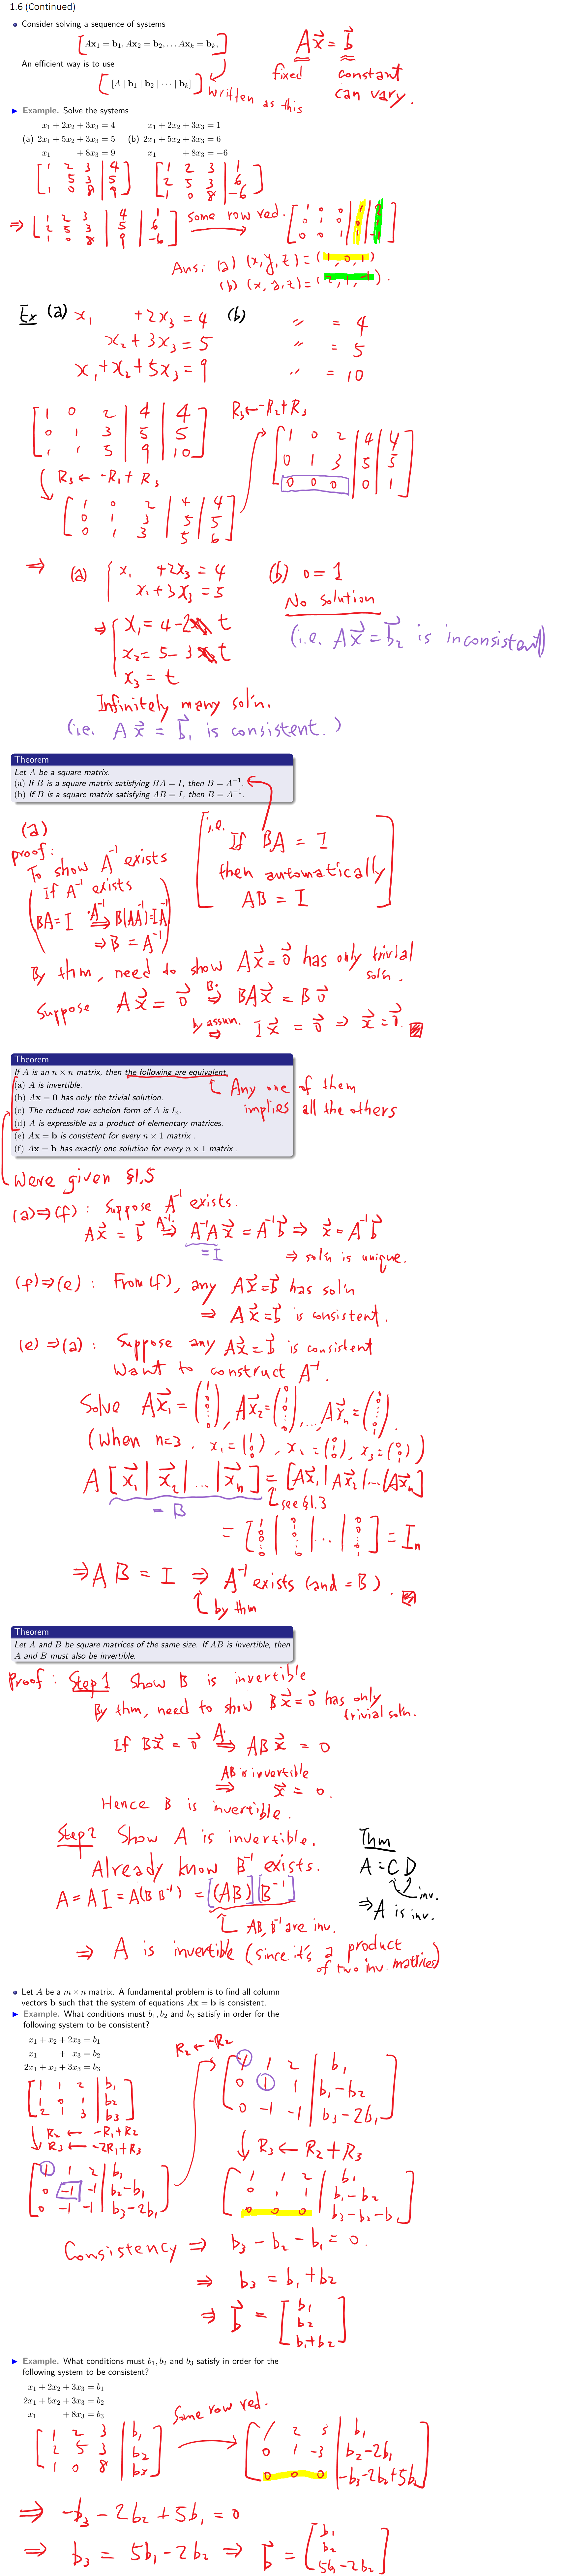 1.6 (Continued)
• Consider solving a sequence of systems
[Ax₁ = b₁, Ax₂ = b₂, … Axₖ = bₖ,]
An efficient way is to use
[[A | b₁ | b₂ | ··· | bₖ]]
written as this
Ax⃗ = b⃗
fixed constant
can vary.
► Example. Solve the systems
(a) x₁ + 2x₂ + 3x₃ = 4 (b) x₁ + 2x₂ + 3x₃ = 1
2x₁ + 5x₂ + 3x₃ = 5 2x₁ + 5x₂ + 3x₃ = 6
x₁ + 8x₃ = 9 x₁ + 8x₃ = −6
[1 2 3 | 4] [1 2 3 | 1]
[2 5 3 | 5] [2 5 3 | 6]
[1 0 8 | 9] [1 0 8 | -6]
⇒ [1 2 3 | 4 | 1] some row red. → [1 0 0 | 1 | 2]
[2 5 3 | 5 | 6] [0 1 0 | 0 | 1]
[1 0 8 | 9 | -6] [0 0 1 | 1 | -1]
Ans: (a) (x,y,z) = (1, 0, 1)
(b) (x,y,z) = (2, 1, -1).
Ex (a) x₁ + 2x₃ = 4 (b) " = 4
x₂ + 3x₃ = 5 " = 5
x₁ + x₂ + 5x₃ = 9 " = 10
[1 0 2 | 4 | 4]
[0 1 3 | 5 | 5]
[1 1 5 | 9 | 10]
R₃ ← -R₁ + R₃
[1 0 2 | 4 | 4]
[0 1 3 | 5 | 5]
[0 1 3 | 5 | 6]
R₃ ← -R₂ + R₃
[1 0 2 | 4 | 4]
[0 1 3 | 5 | 5]
[0 0 0 | 0 | 1]
⇒ (a) { x₁ + 2x₃ = 4 (b) 0 = 1
x₁ + 3x₃ = 5 No solution
⇒ { x₁ = 4 - 2 t (i.e. Ax⃗ = b⃗₂ is inconsistent)
x₂ = 5 - 3 t
x₃ = t
Infinitely many sol'n.
(i.e. Ax⃗ = b⃗₁ is consistent.)
Theorem
Let A be a square matrix.
(a) If B is a square matrix satisfying BA = I, then B = A⁻¹.
(b) If B is a square matrix satisfying AB = I, then B = A⁻¹.
[i.e. If BA = I
then automatically
AB = I]
(a)
proof:
To show A⁻¹ exists
(If A⁻¹ exists
BA = I ·A⁻¹ ⇒ B(AA⁻¹) = IA⁻¹
⇒ B = A⁻¹)
By thm, need to show Ax⃗ = 0⃗ has only trivial
sol'n.
Suppose Ax⃗ = 0⃗ B· ⇒ BAx⃗ = B0⃗
by assum. ⇒ Ix⃗ = 0⃗ ⇒ x⃗ = 0⃗.
Theorem
If A is an n × n matrix, then the following are equivalent.
(a) A is invertible.
(b) Ax = 0 has only the trivial solution.
(c) The reduced row echelon form of A is Iₙ.
(d) A is expressible as a product of elementary matrices.
(e) Ax = b is consistent for every n × 1 matrix .
(f) Ax = b has exactly one solution for every n × 1 matrix .
Any one of them
implies all the others
were given §1.5
(a)⇒(f): Suppose A⁻¹ exists.
Ax⃗ = b⃗ A⁻¹· ⇒ A⁻¹Ax⃗ = A⁻¹b⃗ ⇒ x⃗ = A⁻¹b⃗
= I ⇒ sol'n is unique.
(f)⇒(e): From (f), any Ax⃗ = b⃗ has sol'n
⇒ Ax⃗ = b⃗ is consistent.
(e)⇒(a): Suppose any Ax⃗ = b⃗ is consistent
Want to construct A⁻¹.
Solve Ax⃗₁ = (1 0 ⋮ 0), Ax⃗₂ = (0 1 0 ⋮ 0), ..., Ax⃗ₙ = (0 0 ⋮ 1).
(When n=3. x₁ = (1 0 0), x₂ = (0 1 0), x₃ = (0 0 1))
A [x⃗₁ | x⃗₂ | ... | x⃗ₙ] = [Ax⃗₁ | Ax⃗₂ | ... | Ax⃗ₙ]
= B see §1.3
= [1 0 ⋮ 0 | 0 1 ⋮ 0 | ... | 0 0 ⋮ 1] = Iₙ
⇒ AB = I ⇒ A⁻¹ exists (and = B).
by thm
Theorem
Let A and B be square matrices of the same size. If AB is invertible, then
A and B must also be invertible.
Proof: Step 1 Show B is invertible
By thm, need to show Bx⃗ = 0⃗ has only
trivial sol'n.
If Bx⃗ = 0⃗ A· ⇒ ABx⃗ = 0
AB is invertible
⇒ x⃗ = 0.
Hence B is invertible.
Step 2 Show A is invertible.
Already know B⁻¹ exists.
A = AI = A(BB⁻¹) = [(AB)][B⁻¹]
AB, B⁻¹ are inv.
⇒ A is invertible (since it's a product
of two inv. matrices)
Thm
A = CD
inv.
⇒ A is inv.
• Let A be a m × n matrix. A fundamental problem is to find all column
vectors b such that the system of equations Ax = b is consistent.
► Example. What conditions must b₁, b₂ and b₃ satisfy in order for the
following system to be consistent?
x₁ + x₂ + 2x₃ = b₁
x₁ + x₃ = b₂
2x₁ + x₂ + 3x₃ = b₃
[1 1 2 | b₁]
[1 0 1 | b₂]
[2 1 3 | b₃]
R₂ ← -R₁ + R₂
R₃ ← -2R₁ + R₃
[1 1 2 | b₁]
[0 -1 -1 | b₂-b₁]
[0 -1 -1 | b₃-2b₁]
R₂ ← -R₂
[1 1 2 | b₁]
[0 1 1 | b₁-b₂]
[0 -1 -1 | b₃-2b₁]
R₃ ← R₂ + R₃
[1 1 2 | b₁]
[0 1 1 | b₁-b₂]
[0 0 0 | b₃-b₂-b₁]
Consistency ⇒ b₃ - b₂ - b₁ = 0.
⇒ b₃ = b₁ + b₂
⇒ b⃗ = [b₁
b₂
b₁+b₂]
► Example. What conditions must b₁, b₂ and b₃ satisfy in order for the
following system to be consistent?
x₁ + 2x₂ + 3x₃ = b₁
2x₁ + 5x₂ + 3x₃ = b₂
x₁ + 8x₃ = b₃
[1 2 3 | b₁] Some row red. → [1 2 3 | b₁]
[2 5 3 | b₂] [0 1 -3 | b₂-2b₁]
[1 0 8 | b₃] [0 0 0 | -b₃-2b₂+5b₁]
⇒ -b₃ - 2b₂ + 5b₁ = 0
⇒ b₃ = 5b₁ - 2b₂ ⇒ b⃗ = [b₁
b₂
5b₁-2b₂]